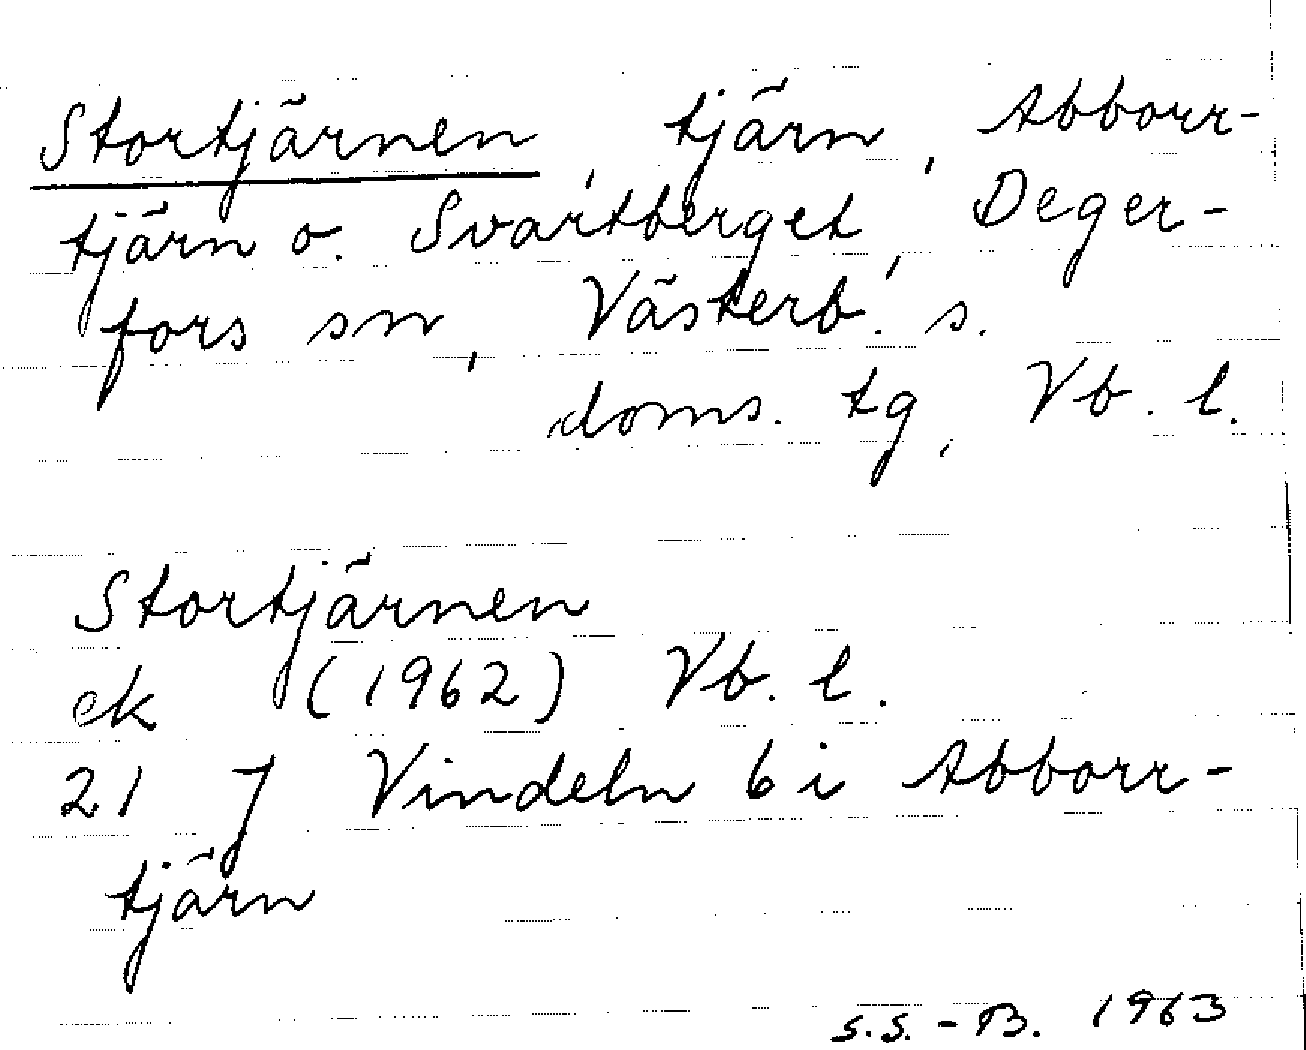 Stortjärnen, tjärn, Abborr-
tjärn o. Svartberget, Deger-
fors sn, Västerb. s.
doms. tg, Vb. l.
Stortjärnen
ek (1962) Vb. l.
21 J Vindeln 6 i Abborr-
tjärn
S.S.-B. 1963